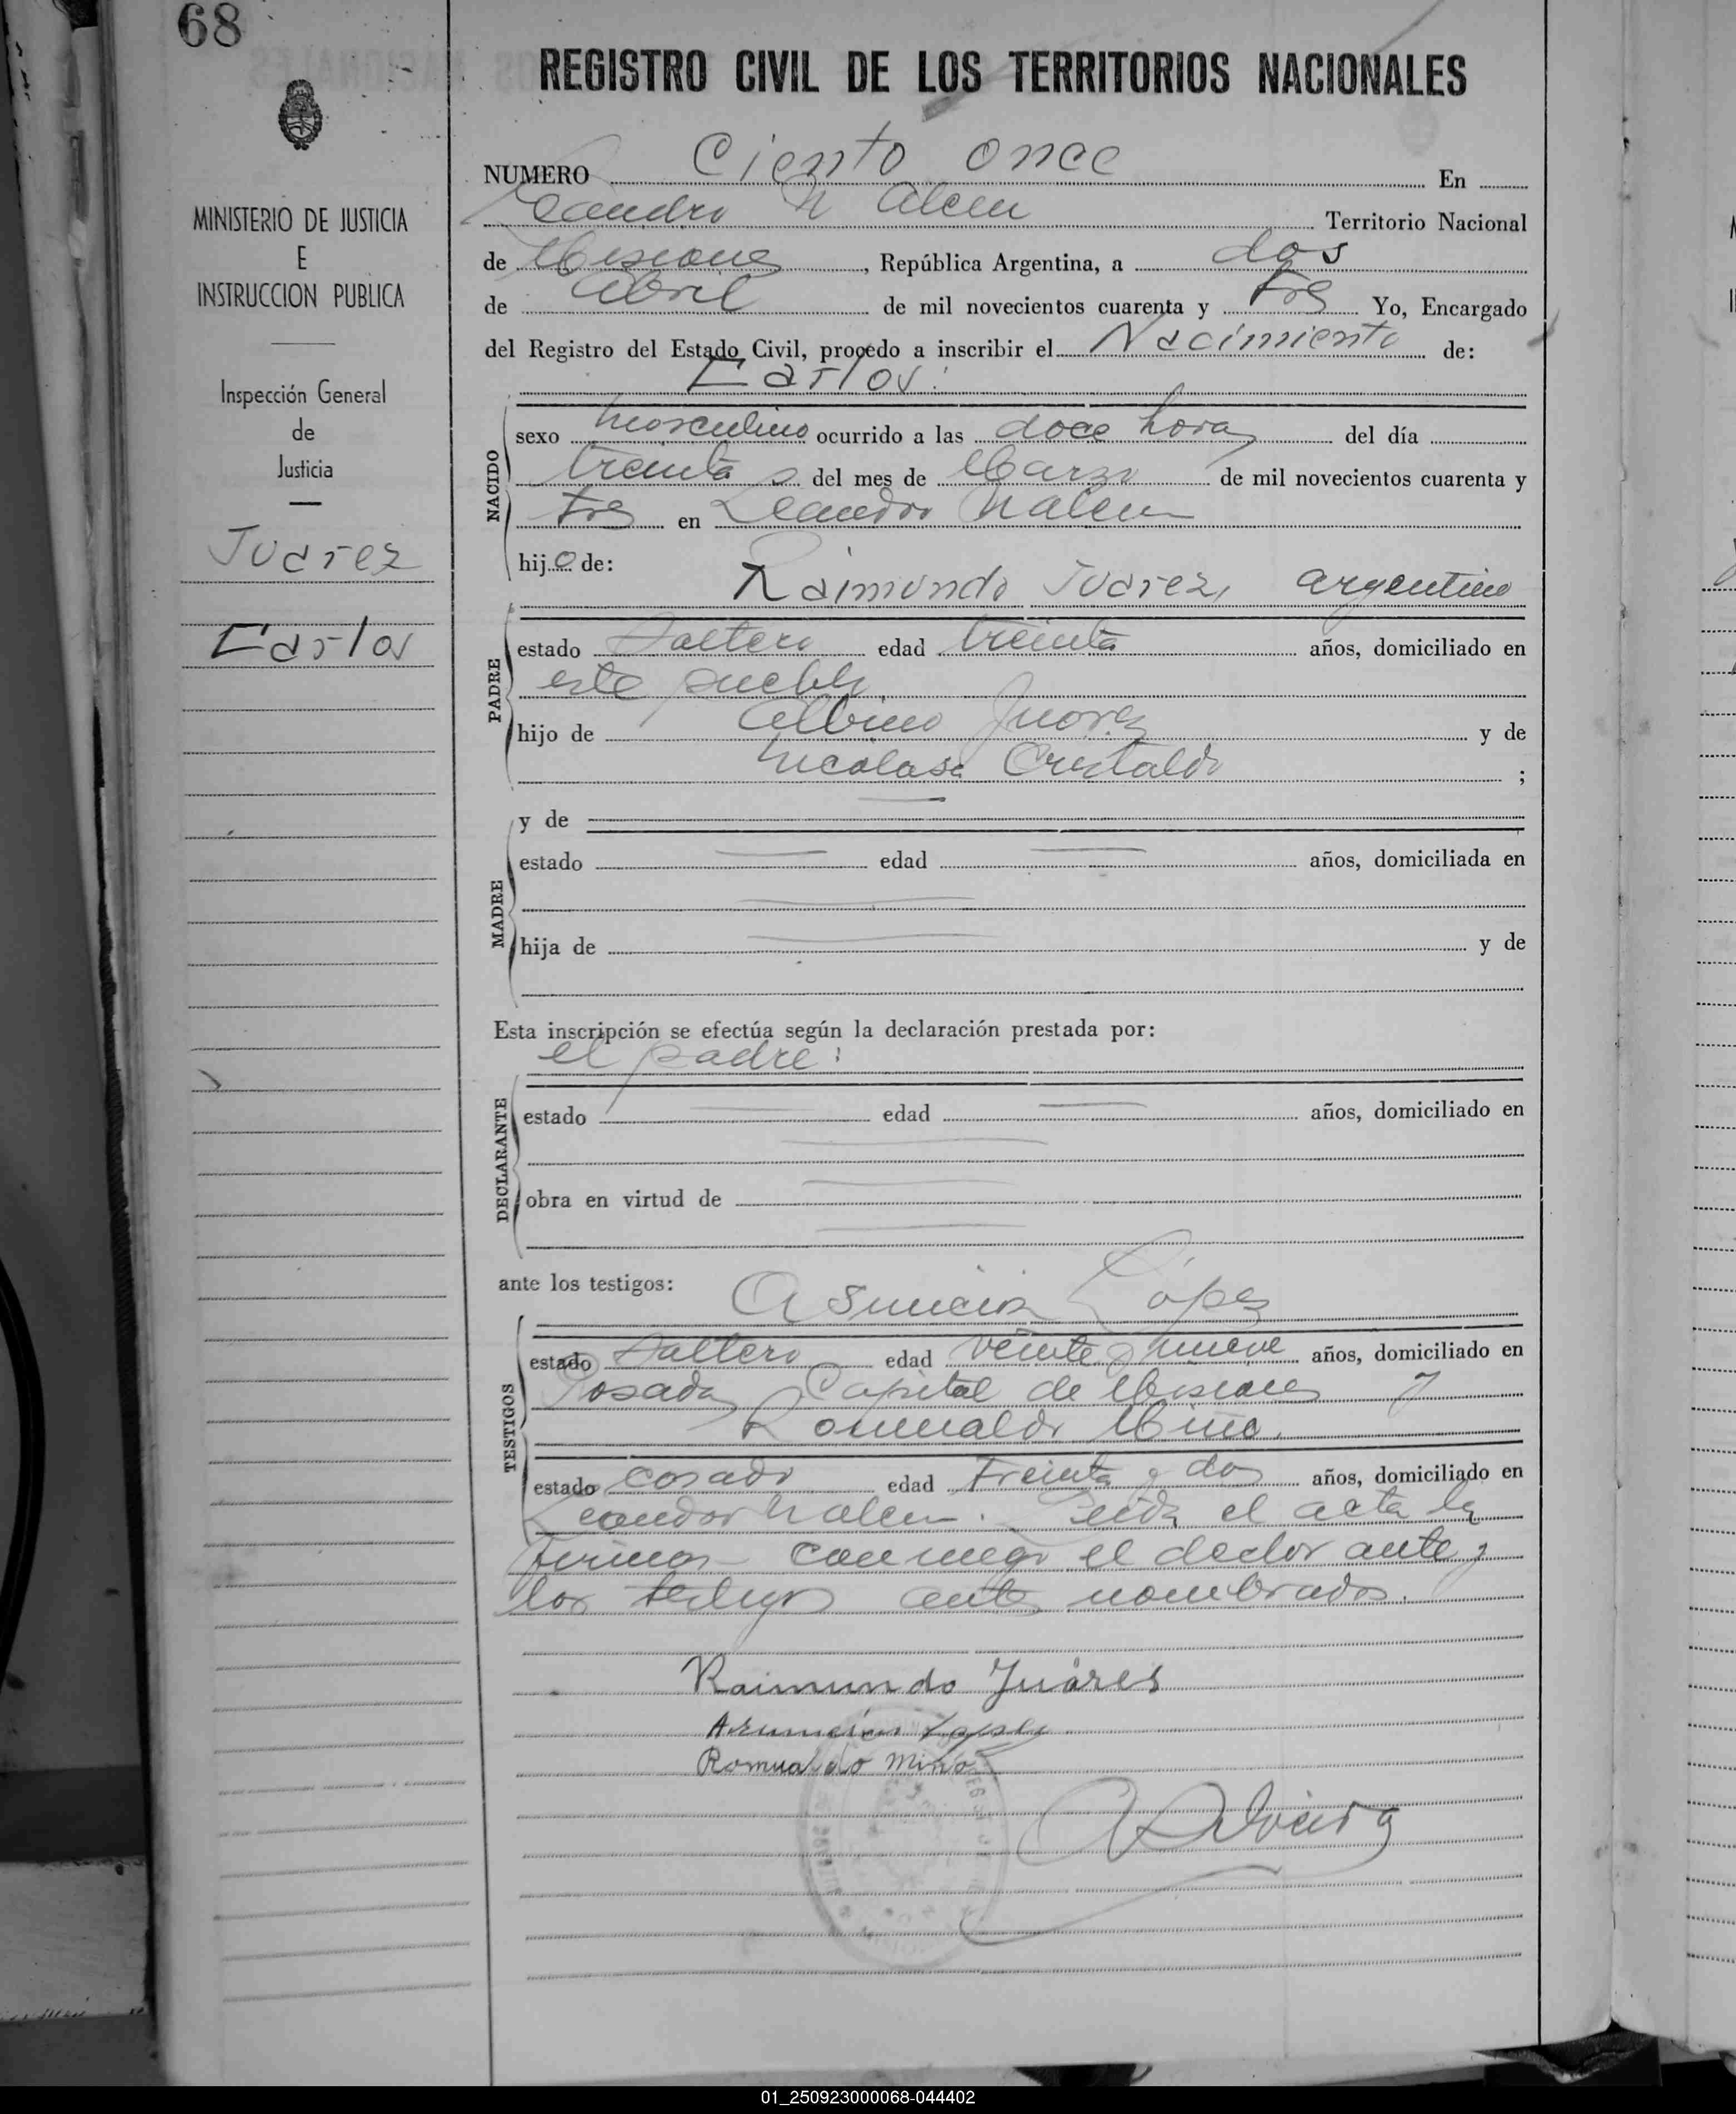 68
REGISTRO CIVIL DE LOS TERRITORIOS NACIONALES
MINISTERIO DE JUSTICIA
E
INSTRUCCION PUBLICA
Inspección General
de
Justicia
Juarez
Carlos
NUMERO Ciento once En
Leandro N Alem Territorio Nacional
de Misiones, República Argentina, a dos
de Abril de mil novecientos cuarenta y tres Yo, Encargado
del Registro del Estado Civil, procedo a inscribir el Nacimiento de:
Carlos:
NACIDO
sexo masculino ocurrido a las doce horas del día
treinta del mes de Marzo de mil novecientos cuarenta y
tres en Leandro N Alem
hijo de:
Raimundo Juarez, argentino
PADRE
estado Soltero edad treinta años, domiciliado en
este pueblo,
hijo de Albino Juarez y de
Nicolasa Cristaldo ;
MADRE
y de
estado edad años, domiciliada en
hija de y de
Esta inscripción se efectúa según la declaración prestada por:
el padre:
DECLARANTE
estado edad años, domiciliado en
obra en virtud de
ante los testigos: Asuncion López
TESTIGOS
estado Soltero edad veinte y nueve años, domiciliado en
Posadas Capital de Misiones y
Romualdo Miño.
estado casado edad treinta y dos años, domiciliado en
Leandro N Alem. Leida el acta la
firman conmigo el declarante y
los testigos antes nombrados.
Raimundo Juáres
Asuncion Lopez
Romualdo Miño
01_250923000068-044402